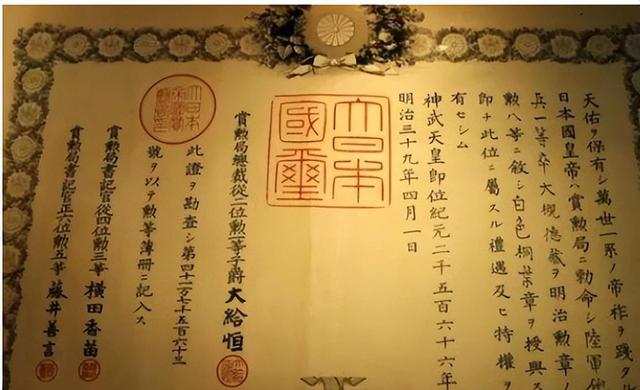 天佑ヲ保有シ萬世一系ノ帝祚ヲ踐タ
日本國皇帝ハ賞勲局ニ勅命シ陸軍砲
兵一等卒大槻德藏ヲ明治勲章
勲八等ニ敍シ白色桐葉章ヲ授與ス
即チ此位ニ屬スル禮遇及ヒ特權ヲ
有セシム
神武天皇即位紀元二千五百六十六年
明治三十九年四月一日
大日本
國璽
賞勲局總裁從二位勲一等子爵大給恒
此證ヲ勘査シ第四十一万七千五百六十三
號ヲ以テ勲等簿冊ニ記入ス
賞勲局書記官從四位勲三等 横田香苗
賞勲局書記官正六位勲五等 藤井善言